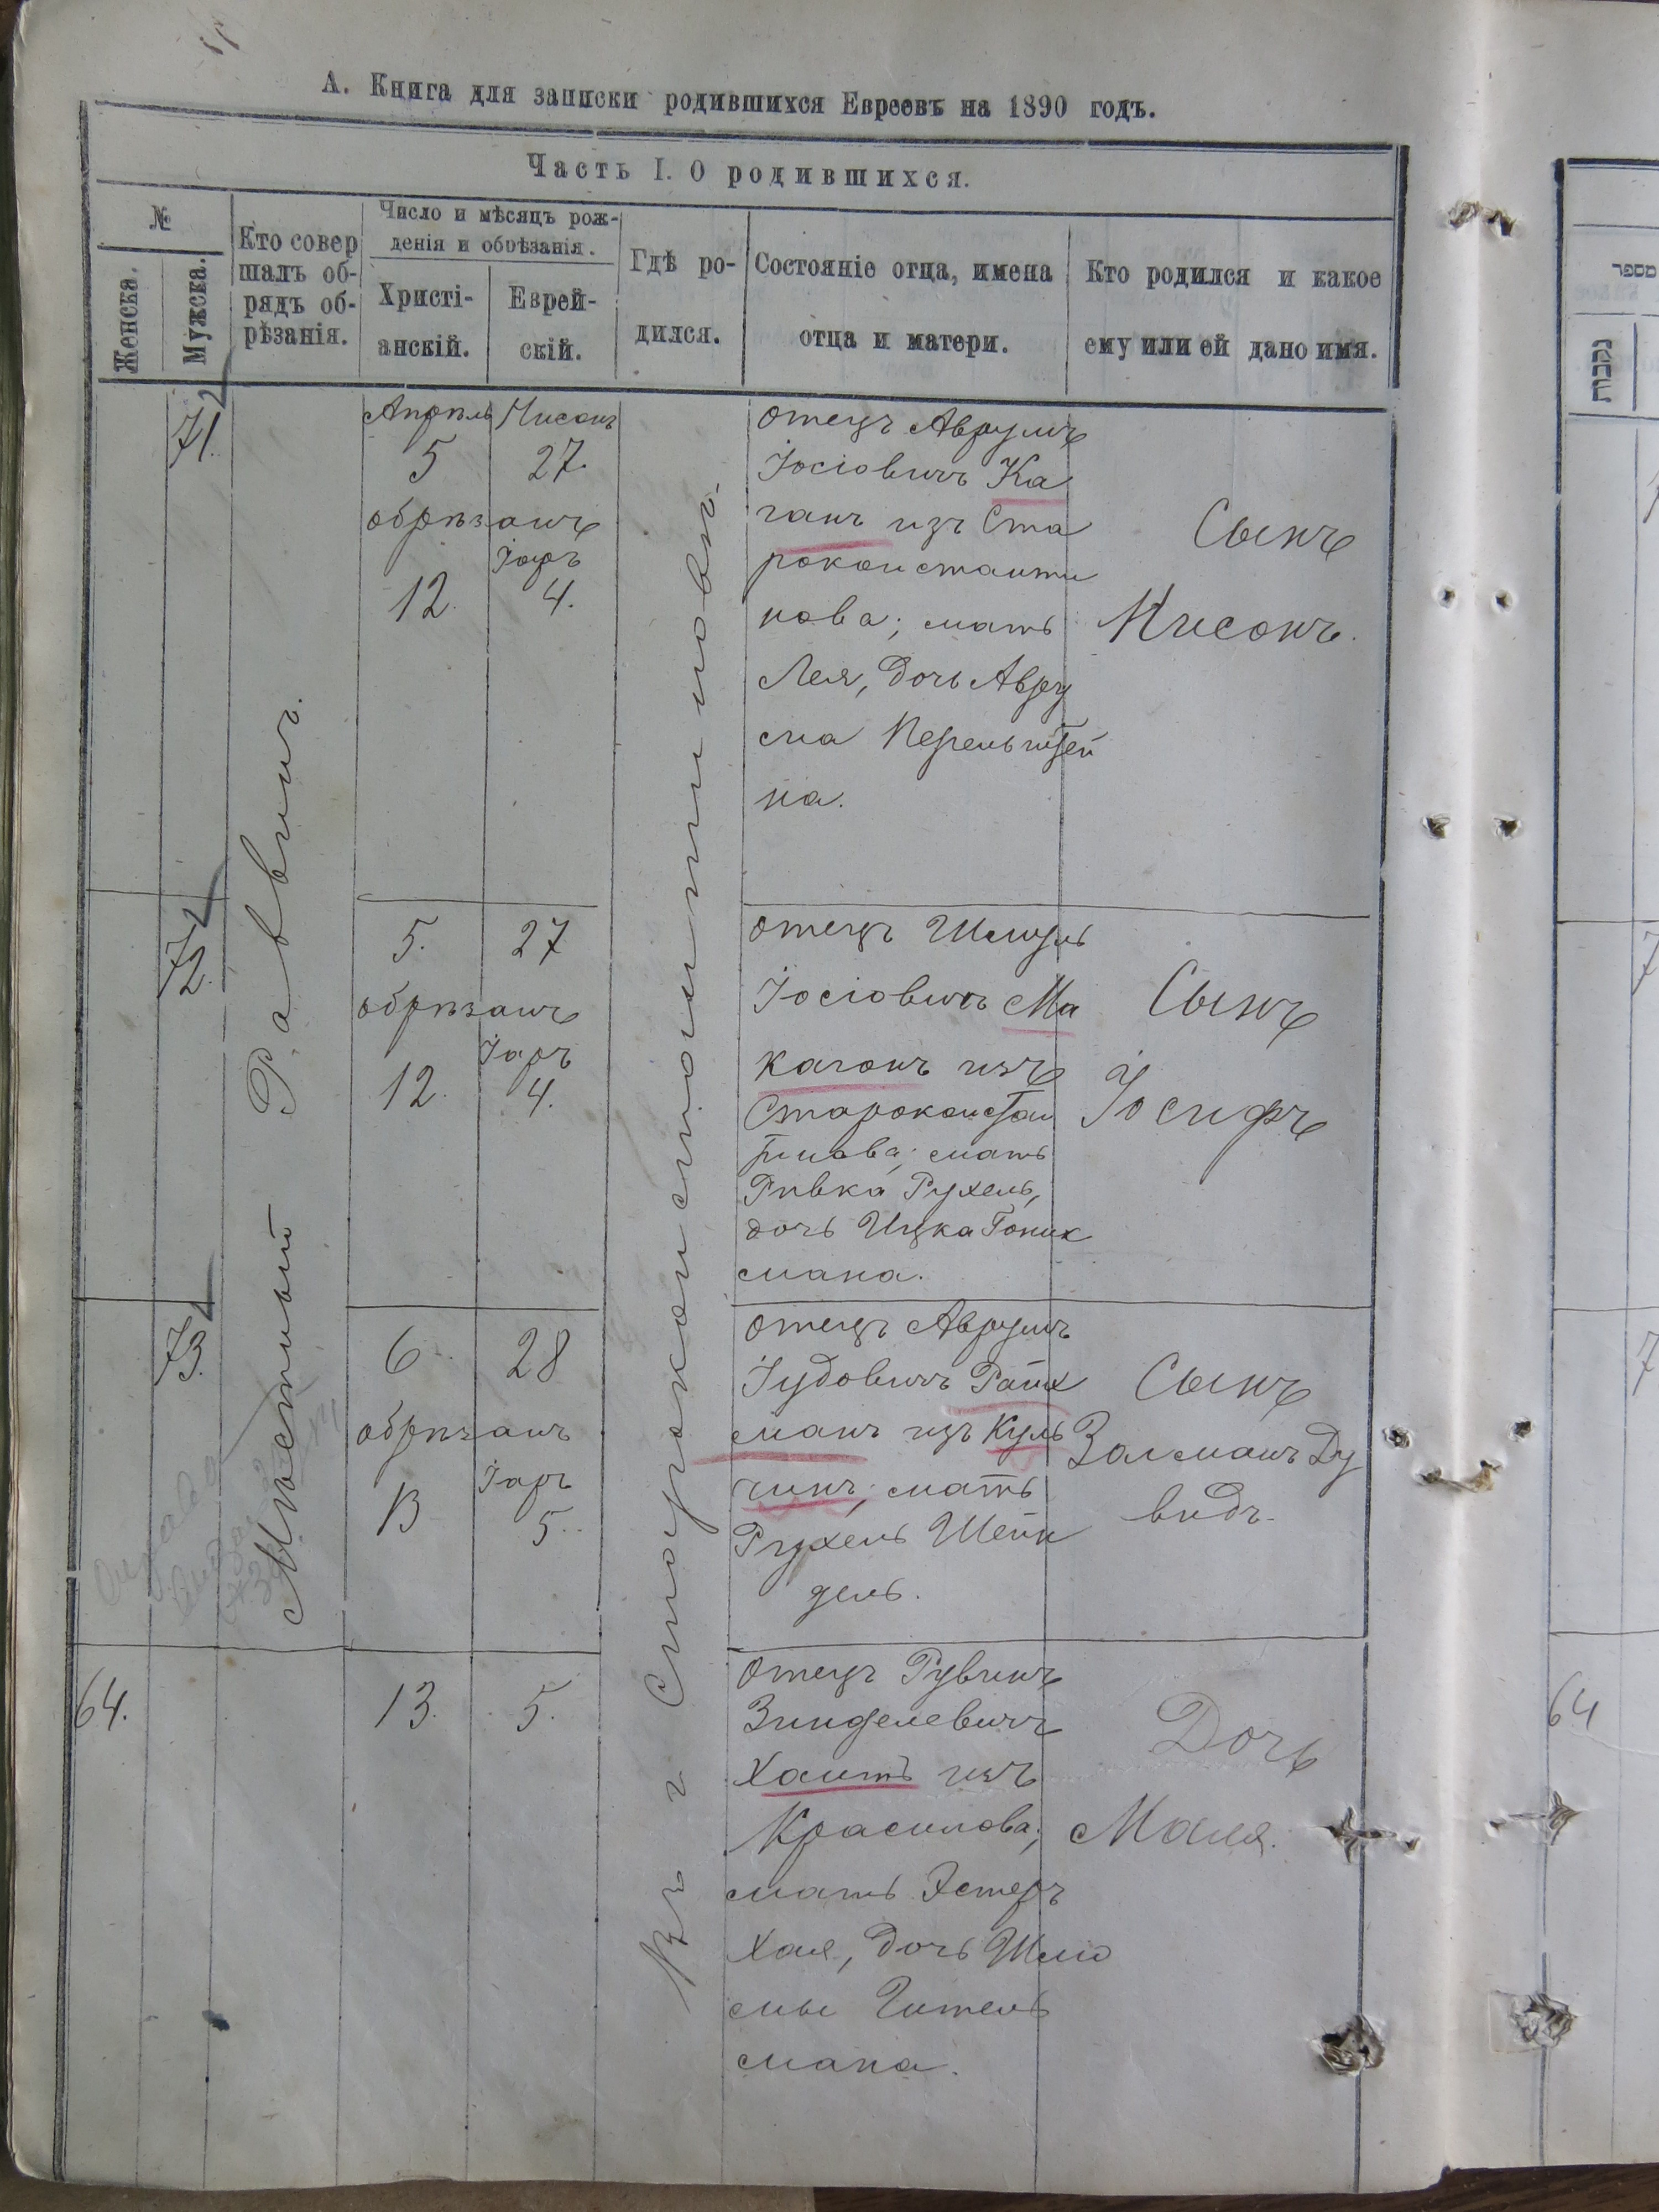 А. Книга для записки родившихся Евреевъ на 1890 годъ.
Часть I. О родившихся.
№
Женска.
Мужска.
Кто совер
шалъ об-
рядъ об-
рѣзанія.
Число и мѣсяцъ рож-
денія и обрѣзанія.
Христі-
анскій.
Еврей-
скій.
Гдѣ ро-
дился.
Состояніе отца, имена
отца и матери.
Кто родился и какое
ему или ей дано имя.
Мѣстный Раввинъ.
Въ г Староконстантиновѣ.
71.
Апрѣль Нисонъ
5 27.
обрѣзанъ
Іаръ
12. 4.
отецъ Аврумъ
Іосіовичъ Ка
ганъ изъ Ста
роконстанти
нова; мать
Лея, дочь Авру
ма Перельштей
на.
Сынъ
Нисонъ.
72.
5. 27
обрѣзанъ
Іаръ
12. 4.
отецъ Шмуль
Іосіовичъ Ма
кагонъ изъ
Староконстан
тинова; мать
Ривка Рухель,
дочь Ицка Гоник
мана.
Сынъ
Іосифъ
73.
6 28
обрѣзанъ
Іаръ
13 5.
отецъ Аврумъ
Іудовичъ Райх
манъ изъ Куль
чинъ; мать
Рухель Шейн
дель.
Сынъ
Залманъ Ду
видъ.
64.
13. 5.
отецъ Рувинъ
Зинделевичъ
Хаитъ изъ
Красилова;
мать Эстеръ
Хая, дочь Шлио
мы Гитель
мана.
Дочь
Маля.
מספר
נקבות
7
7
64